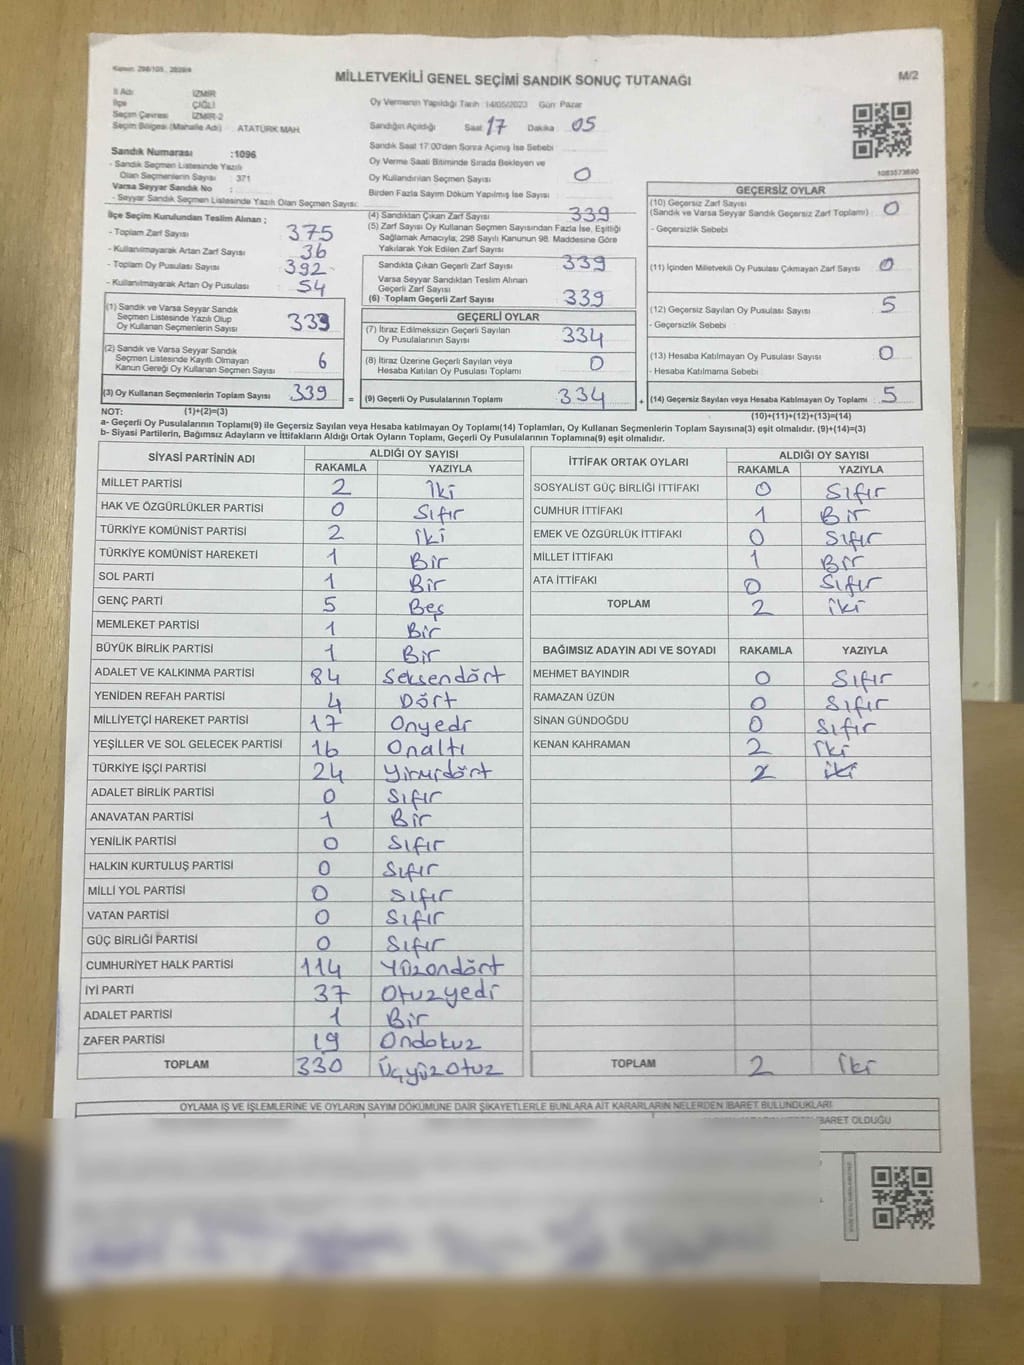 Kanun: 298/105 , 2839/4
MİLLETVEKİLİ GENEL SEÇİMİ SANDIK SONUÇ TUTANAĞI
M/2
İl Adı İZMİR
İlçe ÇİĞLİ
Seçim Çevresi İZMİR-2
Seçim Bölgesi (Mahalle Adı) ATATÜRK MAH.
Sandık Numarası :1096
- Sandık Seçmen Listesinde Yazılı
Olan Seçmenlerin Sayısı : 371
Varsa Seyyar Sandık No :
- Seyyar Sandık Seçmen Listesinde Yazılı Olan Seçmen Sayısı:
Oy Vermenin Yapıldığı Tarih 14/05/2023 Gün: Pazar
Sandığın Açıldığı Saat 17 Dakika 05
Sandık Saat 17:00'den Sonra Açımış İse Sebebi
Oy Verme Saati Bitiminde Sırada Bekleyen ve
Oy Kullandırılan Seçmen Sayısı 0
Birden Fazla Sayım Döküm Yapılmış İse Sayısı
1083573690
İlçe Seçim Kurulundan Teslim Alınan ;
- Toplam Zarf Sayısı 375
- Kullanılmayarak Artan Zarf Sayısı 36
- Toplam Oy Pusulası Sayısı 392
- Kullanılmayarak Artan Oy Pusulası 54
(1) Sandık ve Varsa Seyyar Sandık
Seçmen Listesinde Yazılı Olup
Oy Kullanan Seçmenlerin Sayısı 333
(2) Sandık ve Varsa Seyyar Sandık
Seçmen Listesinde Kayıtlı Olmayan
Kanun Gereği Oy Kullanan Seçmen Sayısı 6
(3) Oy Kullanan Seçmenlerin Toplam Sayısı 339 =
(4) Sandıktan Çıkan Zarf Sayısı 339
(5) Zarf Sayısı Oy Kullanan Seçmen Sayısından Fazla İse, Eşitliği
Sağlamak Amacıyla; 298 Sayılı Kanunun 98. Maddesine Göre
Yakılarak Yok Edilen Zarf Sayısı
Sandıkta Çıkan Geçerli Zarf Sayısı 339
Varsa Seyyar Sandıktan Teslim Alınan
Geçerli Zarf Sayısı
(6) Toplam Geçerli Zarf Sayısı 339
GEÇERLİ OYLAR
(7) İtiraz Edilmeksizin Geçerli Sayılan
Oy Pusulalarının Sayısı 334
(8) İtiraz Üzerine Geçerli Sayılan veya
Hesaba Katılan Oy Pusulası Toplamı 0
(9) Geçerli Oy Pusulalarının Toplamı 334 +
GEÇERSİZ OYLAR
(10) Geçersiz Zarf Sayısı
(Sandık ve Varsa Seyyar Sandık Geçersiz Zarf Toplamı) : 0
- Geçersizlik Sebebi
(11) İçinden Milletvekili Oy Pusulası Çıkmayan Zarf Sayısı : 0
(12) Geçersiz Sayılan Oy Pusulası Sayısı : 5
- Geçersizlik Sebebi
(13) Hesaba Katılmayan Oy Pusulası Sayısı : 0
- Hesaba Katılmama Sebebi
(14) Geçersiz Sayılan veya Hesaba Katılmayan Oy Toplamı : 5
NOT: (1)+(2)=(3)
(10)+(11)+(12)+(13)=(14)
a- Geçerli Oy Pusulalarının Toplamı(9) ile Geçersiz Sayılan veya Hesaba katılmayan Oy Toplamı(14) Toplamları, Oy Kullanan Seçmenlerin Toplam Sayısına(3) eşit olmalıdır. (9)+(14)=(3)
b- Siyasi Partilerin, Bağımsız Adayların ve İttifakların Aldığı Ortak Oyların Toplamı, Geçerli Oy Pusulalarının Toplamına(9) eşit olmalıdır.
SİYASİ PARTİNİN ADI ALDIĞI OY SAYISI
RAKAMLA YAZIYLA
MİLLET PARTİSİ 2 İki
HAK VE ÖZGÜRLÜKLER PARTİSİ 0 Sıfır
TÜRKİYE KOMÜNİST PARTİSİ 2 iki
TÜRKİYE KOMÜNİST HAREKETİ 1 Bir
SOL PARTİ 1 Bir
GENÇ PARTİ 5 Beş
MEMLEKET PARTİSİ 1 Bir
BÜYÜK BİRLİK PARTİSİ 1 Bir
ADALET VE KALKINMA PARTİSİ 84 Seksendört
YENİDEN REFAH PARTİSİ 4 Dört
MİLLİYETÇİ HAREKET PARTİSİ 17 Onyedi
YEŞİLLER VE SOL GELECEK PARTİSİ 16 Onaltı
TÜRKİYE İŞÇİ PARTİSİ 24 Yirmidört
ADALET BİRLİK PARTİSİ 0 Sıfır
ANAVATAN PARTİSİ 1 Bir
YENİLİK PARTİSİ 0 Sıfır
HALKIN KURTULUŞ PARTİSİ 0 Sıfır
MİLLİ YOL PARTİSİ 0 Sıfır
VATAN PARTİSİ 0 Sıfır
GÜÇ BİRLİĞİ PARTİSİ 0 Sıfır
CUMHURİYET HALK PARTİSİ 114 Yüzondört
İYİ PARTİ 37 Otuzyedi
ADALET PARTİSİ 1 Bir
ZAFER PARTİSİ 19 Ondokuz
TOPLAM 330 Üçyüzotuz
İTTİFAK ORTAK OYLARI ALDIĞI OY SAYISI
RAKAMLA YAZIYLA
SOSYALİST GÜÇ BİRLİĞİ İTTİFAKI 0 Sıfır
CUMHUR İTTİFAKI 1 Bir
EMEK VE ÖZGÜRLÜK İTTİFAKI 0 Sıfır
MİLLET İTTİFAKI 1 Bir
ATA İTTİFAKI 0 Sıfır
TOPLAM 2 iki
BAĞIMSIZ ADAYIN ADI VE SOYADI RAKAMLA YAZIYLA
MEHMET BAYINDIR 0 Sıfır
RAMAZAN ÜZÜN 0 Sıfır
SİNAN GÜNDOĞDU 0 Sıfır
KENAN KAHRAMAN 2 İki
2 iki
TOPLAM 2 İki
OYLAMA İŞ VE İŞLEMLERİNE VE OYLARIN SAYIM DÖKÜMÜNE DAİR ŞİKAYETLERLE BUNLARA AİT KARARLARIN NELERDEN İBARET BULUNDUKLARI
İBARET OLDUĞU